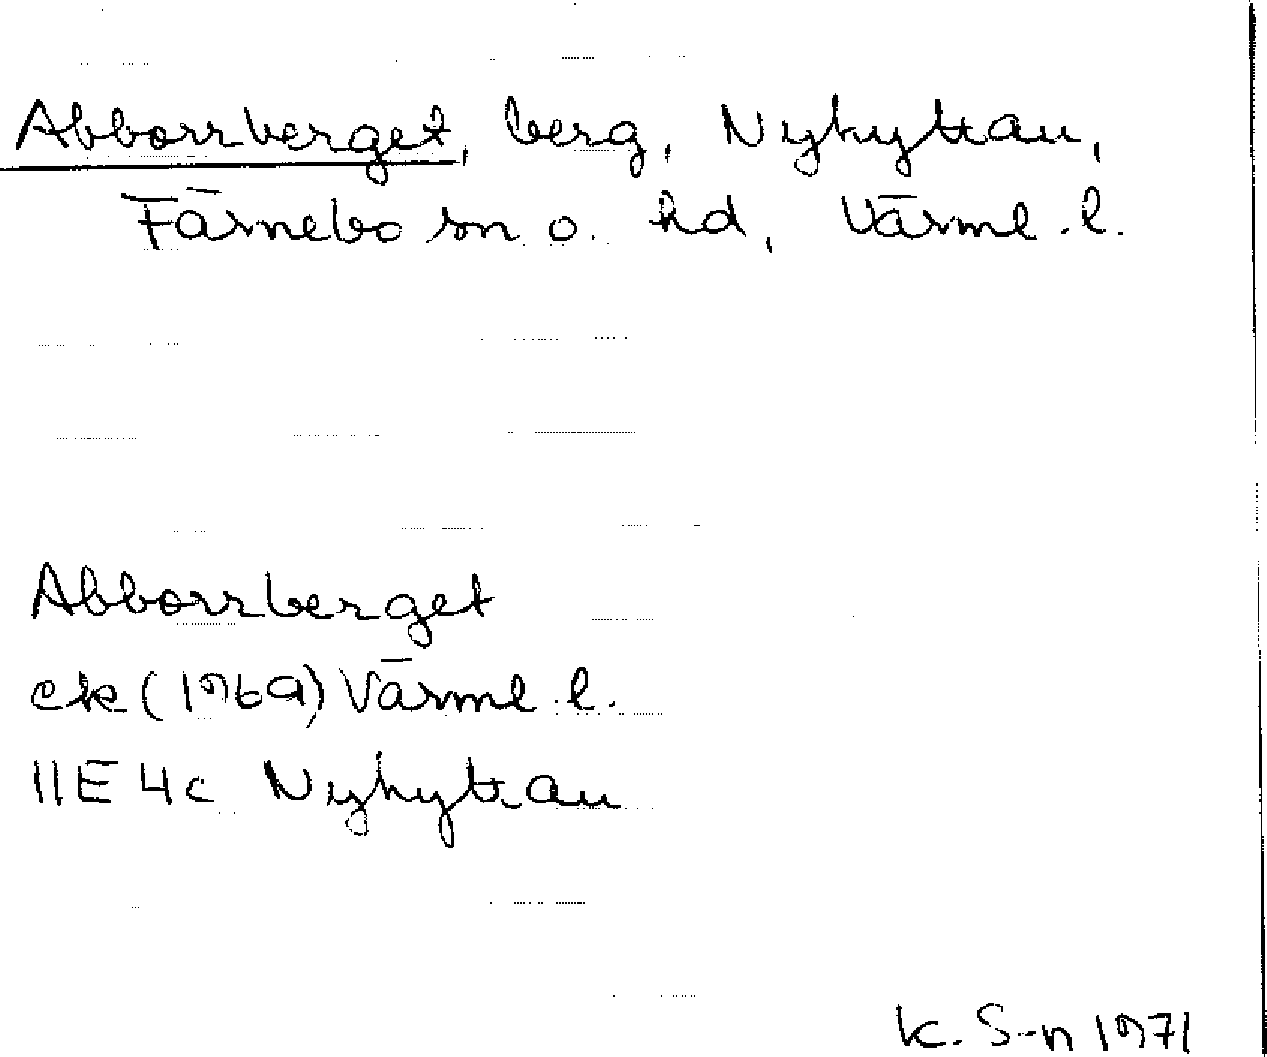 Abborrberget, berg, Nyhyttan,
Färnebo sn o. hd, Värml. l.
Abborrberget
ek (1969) Värml. l.
11E 4c Nyhyttan
K. S-n 1971